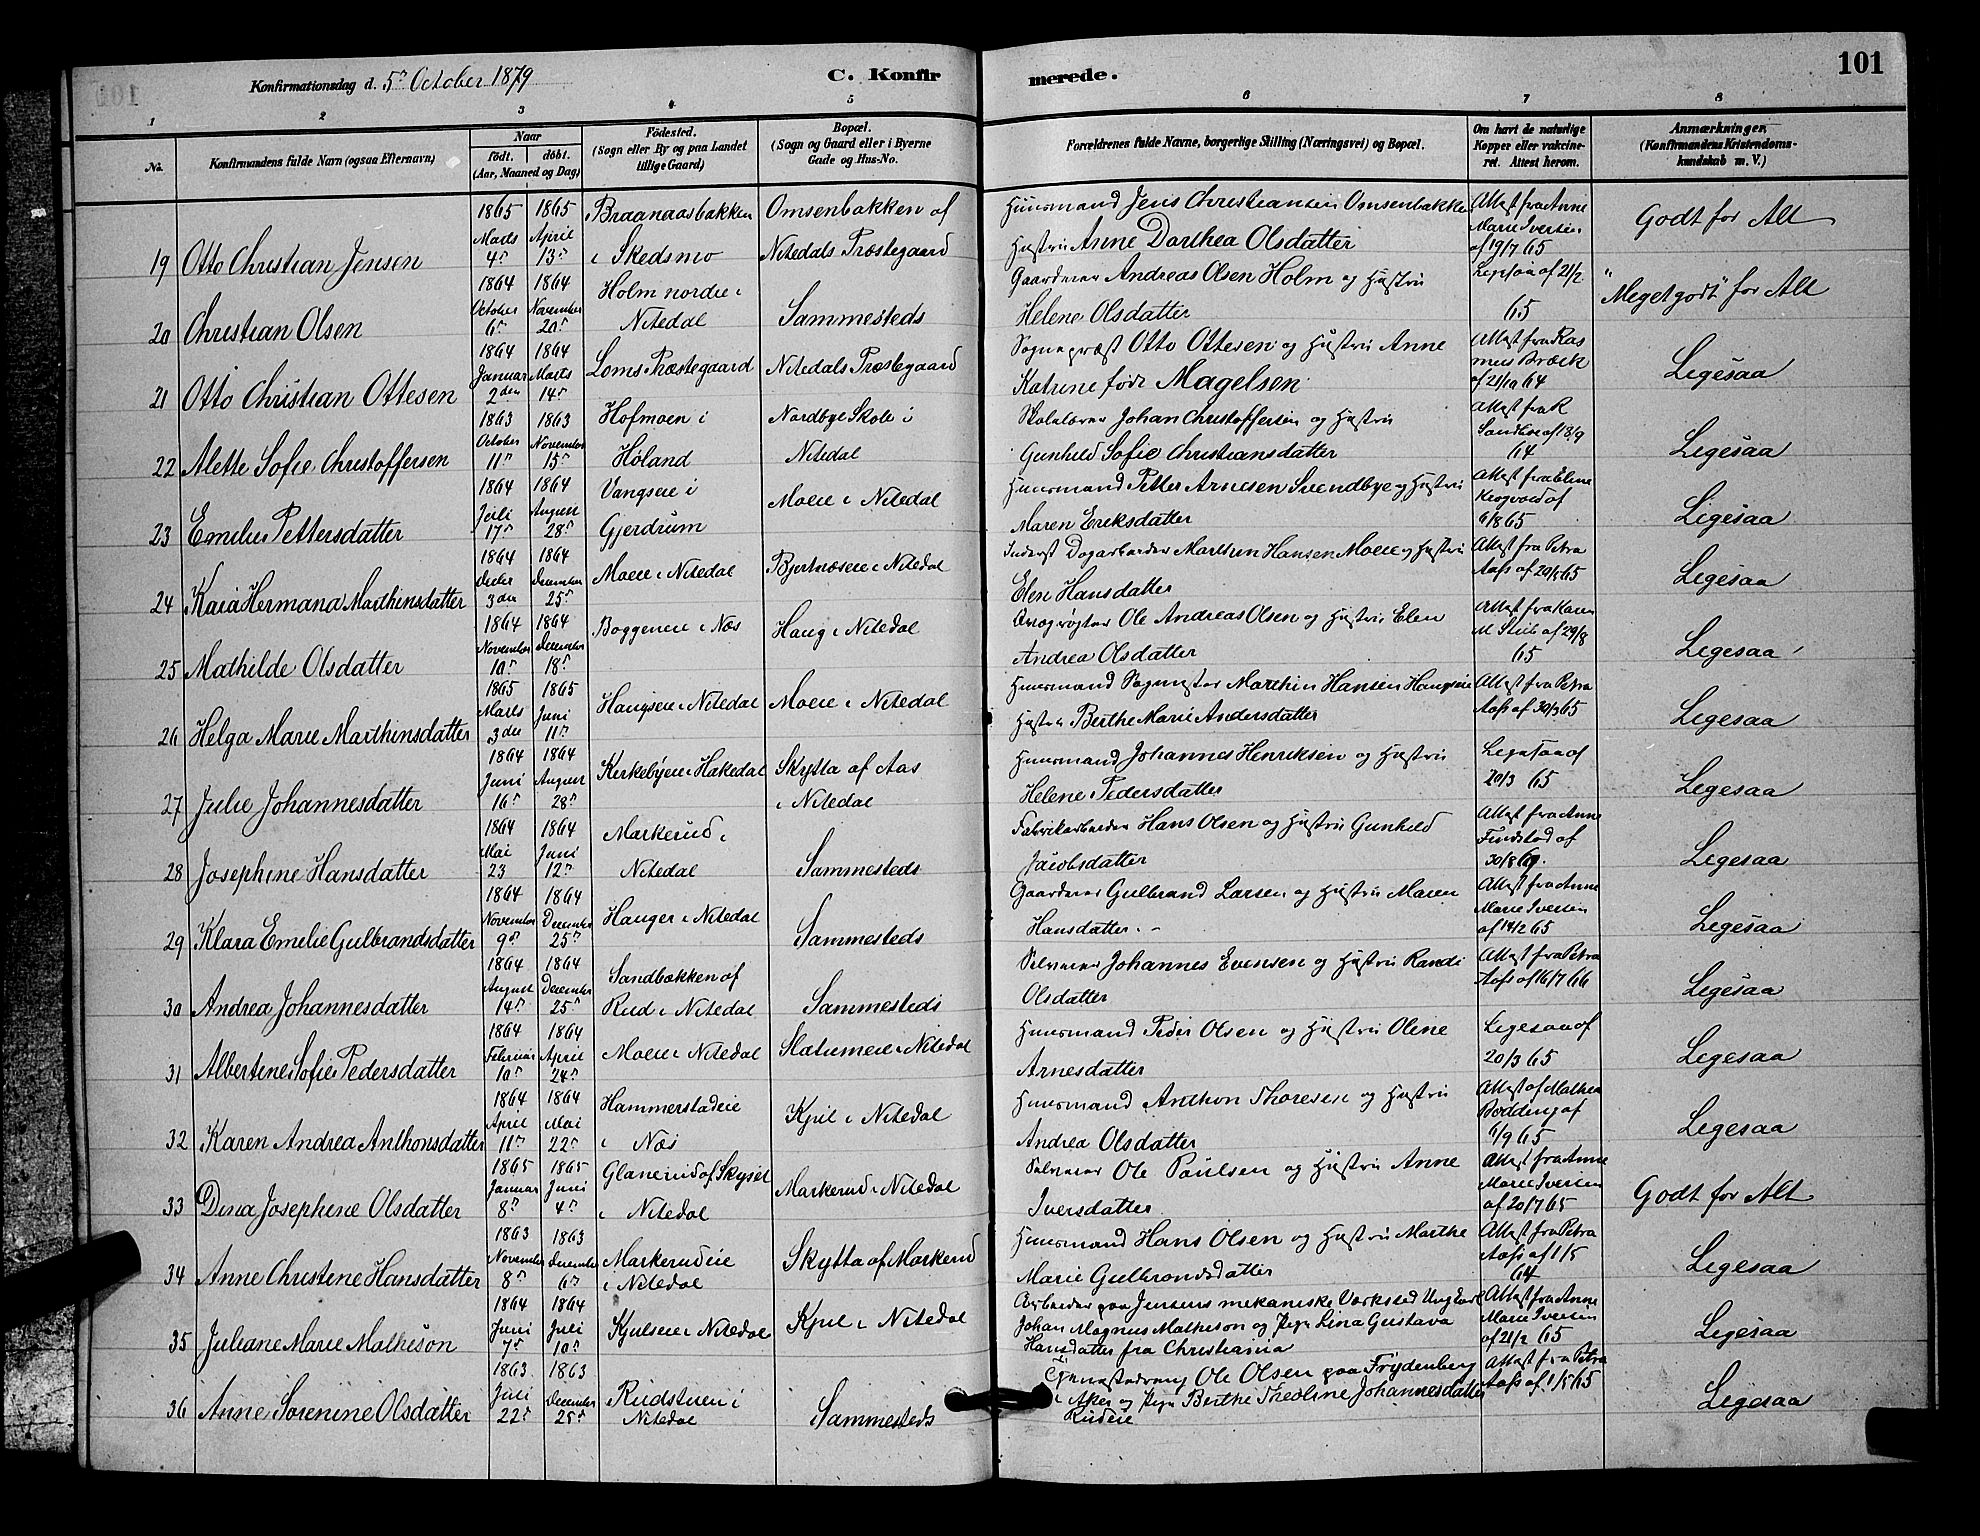 101
Konfirmationsdag d. 5' October 1879
C. Konfir merede.
1 2 3 4 5 6 7 8
No.
Konfirmandens fulde Navn (ogsaa Efternavn)
Naar
født. døbt.
(Aar, Maaned og Dag)
Fødested.
(Sogn eller By og paa Landet
tillige Gaard)
Bopæl.
(Sogn og Gaard eller i Byerne
Gade og Hus-No.
Forældrenes fulde Navne, borgerlige Stilling (Næringsvei) og Bopæl.
Om havt de naturlige
Kopper eller vakcine-
ret. Attest herom.
Anmærkninger.
(Konfirmandens Kristendoms-
kundskab m. V.)
19 Otto Christian Jensen
1865 Marts 4' 1865 April 13'
Braanaasbakken
i Skedsmo
Omsenbakken af
Nitedals Præstegaard
Huusmand Jens Christiansen Omsenbakken
Hustru Anne Dorthea Olsdatter
Attest fra Anne
Marie Iversen
af 19/7 65
Godt for Alt
20 Christian Olsen
1864 October 6' 1864 November 20'
Holm nordre i
Nitedal
Sammesteds
Gaardbruger Andreas Olsen Holm og Hustru
Helene Olsdatter
Ligesaa af 21/2
65
"Meget godt" for Alt
21 Otto Christian Ottesen
1864 Januar 2den 1864 Marts 14'
Loms Præstegaard
Nitedals Præstegaard
Sognepræst Otto Ottesen og Hustru Anne
Katrine født Magelsen
Attest fra Ras
mus Bræck
af 21/10 64
Ligesaa
22 Alette Sofie Christoffersen
1863 October 11' 1863 November 15'
Hofmoen i
Høland
Nordbye Skole i
Nitedal
Skolelærer Johan Christoffersen og Hustru
Gunhild Sofie Christiansdatter
Attest fra R
af 13/9
64
Ligesaa
23 Emilie Pettersdatter
1864 Juli 17' 1864 August 28'
Vangseie i
Gjerdrum
Moeie i Nitedal
Huusmand Petter Arnesen Svendbye og Hustru
Maren Eriksdatter
Attest fra Eline
Krogvold af
6/8 65
Ligesaa
24 Kaia Hermana Marthinsdatter
1864 3die 1864 December 25'
Moeie i Nitedal
Bjertnæseie i Nitedal
Inderst Dagarbeider Marthin Hansen Moeie og Hustru
Elen Hansdatter
Attest fra Petra
Aass af 20/5 65
Ligesaa
25 Mathilde Olsdatter
1864 November 10' 1864 December 18'
Boggeneie i Næs
Haug i Nitedal
Ole Andreas Olsen og Hustru Elen
Andrea Olsdatter
Attest fra Karen
M Stub af 29/8
65
Ligesaa
26 Helga Marie Marthinsdatter
1865 Marts 3die 1865 Juni 11'
Haugseie i Nitedal
Moeie i Nitedal
Huusmand Sagmester Marthin Hansen Haugseie
Hustru Berthe Marie Andersdatter
Attest fra Petra
Aass af 30/3 65
Ligesaa
27 Julie Johannesdatter
1864 Juni 16' 1864 August 28'
Kirkebyeie i Hakedal
Skytta af Aas
i Nitedal
Huusmand Johannes Henriksen og Hustru
Helene Pedersdatter
Ligesaa af
20/3 65
Ligesaa
28 Josephine Hansdatter
1864 Mai 23 1864 Juni 12'
Markerud i
Nitedal
Sammesteds
Fabrikarbeider Hans Olsen og Hustru Gunhild
Jacobsdatter
Attest fra Anne
Findstad af
30/8 69.
Ligesaa
29 Klara Emelie Gulbrandsdatter
1864 November 9' 1864 December 25'
Hauger i Nitedal
Sammesteds
Gaardbruger Gulbrand Larsen og Hustru Maren
Hansdatter. -
Attest fra Anne
Marie Iversen
af 14/2 65
Ligesaa
30 Andrea Johannesdatter
1864 August 14' 1864 December 25'
Sandbakken af
Rud i Nitedal
Sammesteds
Selveier Johannes Evensen og Hustru Randi
Olsdatter
Attest fra Petra
Aass af 16/7 66
Ligesaa
31 Albertine Sofie Pedersdatter
1864 Februar 10' 1864 April 24'
Moeie i Nitedal
Slatumeie i Nitedal
Huusmand Peder Olsen og Hustru Oline
Arnesdatter
Ligesaa af
20/3 65
Ligesaa
32 Karen Andrea Anthonsdatter
1864 April 11' 1864 Mai 22'
Hammerstadeie
i Næs
Kjul i Nitedal
Huusmand Anthon Thoresen og Hustru
Andrea Olsdatter
Attest af Mathea
Bodding af
6/9 65
Ligesaa
33 Dina Josephine Olsdatter
1865 Januar 8' 1865 Juni 4'
Glanerud af Skyset
i Nitedal
Markerud i Nitedal
Selveier Ole Paulsen og Hustru Anne
Iversdatter
Attest fra Anne
Marie Iversen
af 20/7 65
Godt for Alt
34 Anne Christene Hansdatter
1863 November 8' 1863 December 6'
Markerudeie
i Nitedal
Skytta af Markerud
Huusmand Hans Olsen og Hustru Marthe
Marie Gulbrandsdatter
Attest fra Petra
Aass af 1/5
64
Ligesaa
35 Juliane Marie Matheson
1864 Juni 7' 1864 Juli 10'
Kjulseie i Nitedal
Kjul i Nitedal
Arbeider paa Jensens mekaniske Værksted Ungkarl
Johan Magnus Matheson og Pige Lina Gustava
Hansdatter fra Christiania
Attest fra Anne
Marie Iversen
af 21/2 65
Ligesaa
36 Anne Sørenine Olsdatter
1863 Juli 22' 1863 December 25'
Rudstuen i
Nitedal
Sammesteds
Tjenestedreng Ole Olsen paa Frydenberg
i Aker og Pige Berthe Theoline Johannesdatter
Rudeie
Attest fra Petra
Aass af 1/5 65
Ligesaa